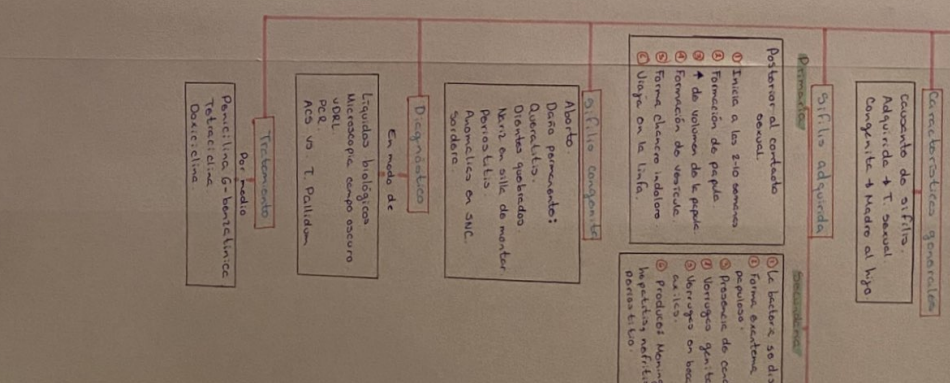 Características generales
Causante de sífilis.
Adquirida → T. sexual
Congenita → Madre al hijo
Sífilis adquirida
Primaria
Posterior al contacto
sexual.
① Inicia a las 2-10 semanas
② Formación de papula
③ ↑ de volumen de la papula.
④ Formación de vesícula.
⑤ Forma chancro indoloro
⑥ Viaja en la linfa.
Secundaria
① La bacteria se
② Forma exantema
papuloso.
③ Presencia de
④ Verrugas
⑤ Verrugas en
axilas.
⑥ Produce:
hepatitis, nefritis
periostitis.
Sífilis congenita
Aborto.
Daño permanente:
Queratitis.
Dientes quebrados.
Nariz en silla de montar
Periostitis.
Anomalias en SNC.
Sordera.
Diagnóstico
En modo de
Líquidos biológicos
Microscopia campo oscuro
VDRL
PCR.
ACS vs. T. Pallidum
Tratamiento
Por medio
Penicilina G-benzatinica
Tetraciclina
Doxiciclina